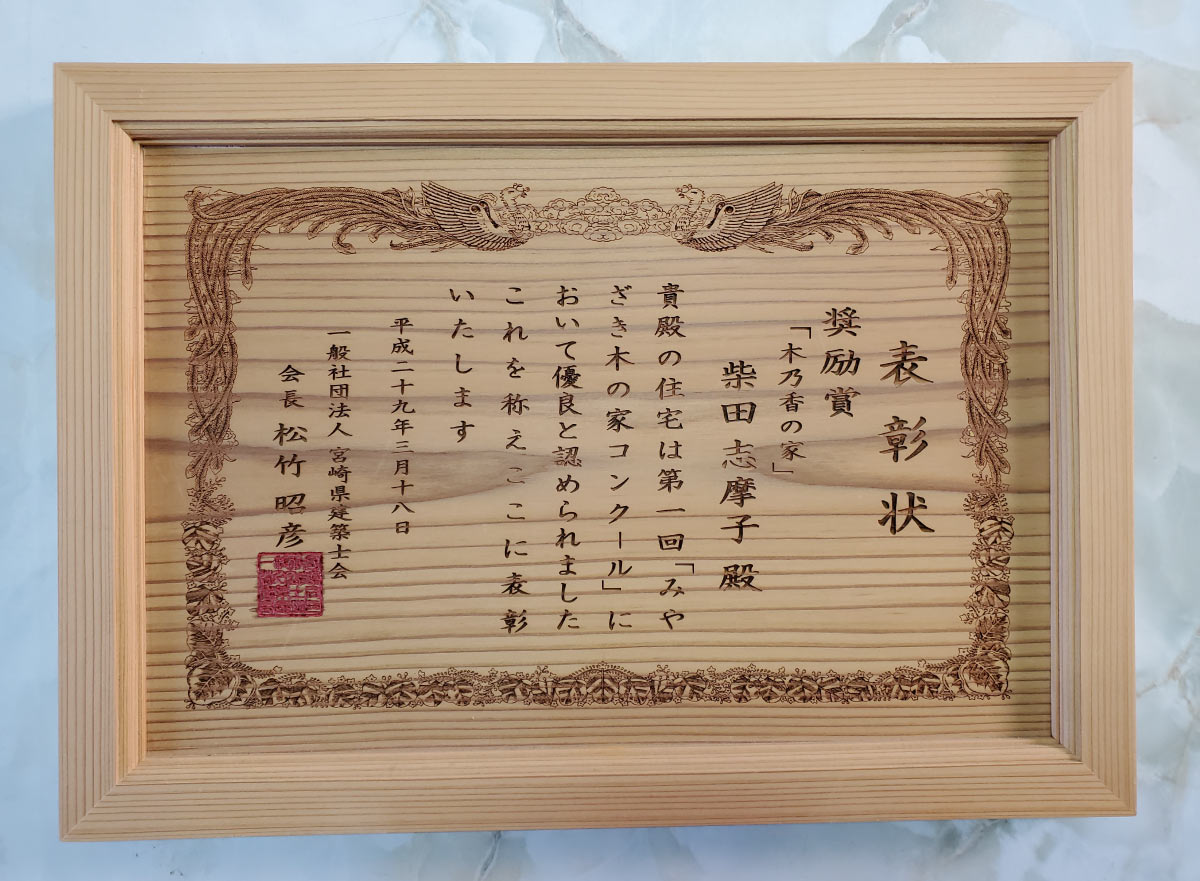 表彰状
奨励賞
「木乃香の家」
柴田志摩子殿
貴殿の住宅は第一回「みや
ざき木の家コンクール」に
おいて優良と認められました
これを称えここに表彰
いたします
平成二十九年三月十八日
一般社団法人 宮崎県建築士会
会長 松竹昭彦